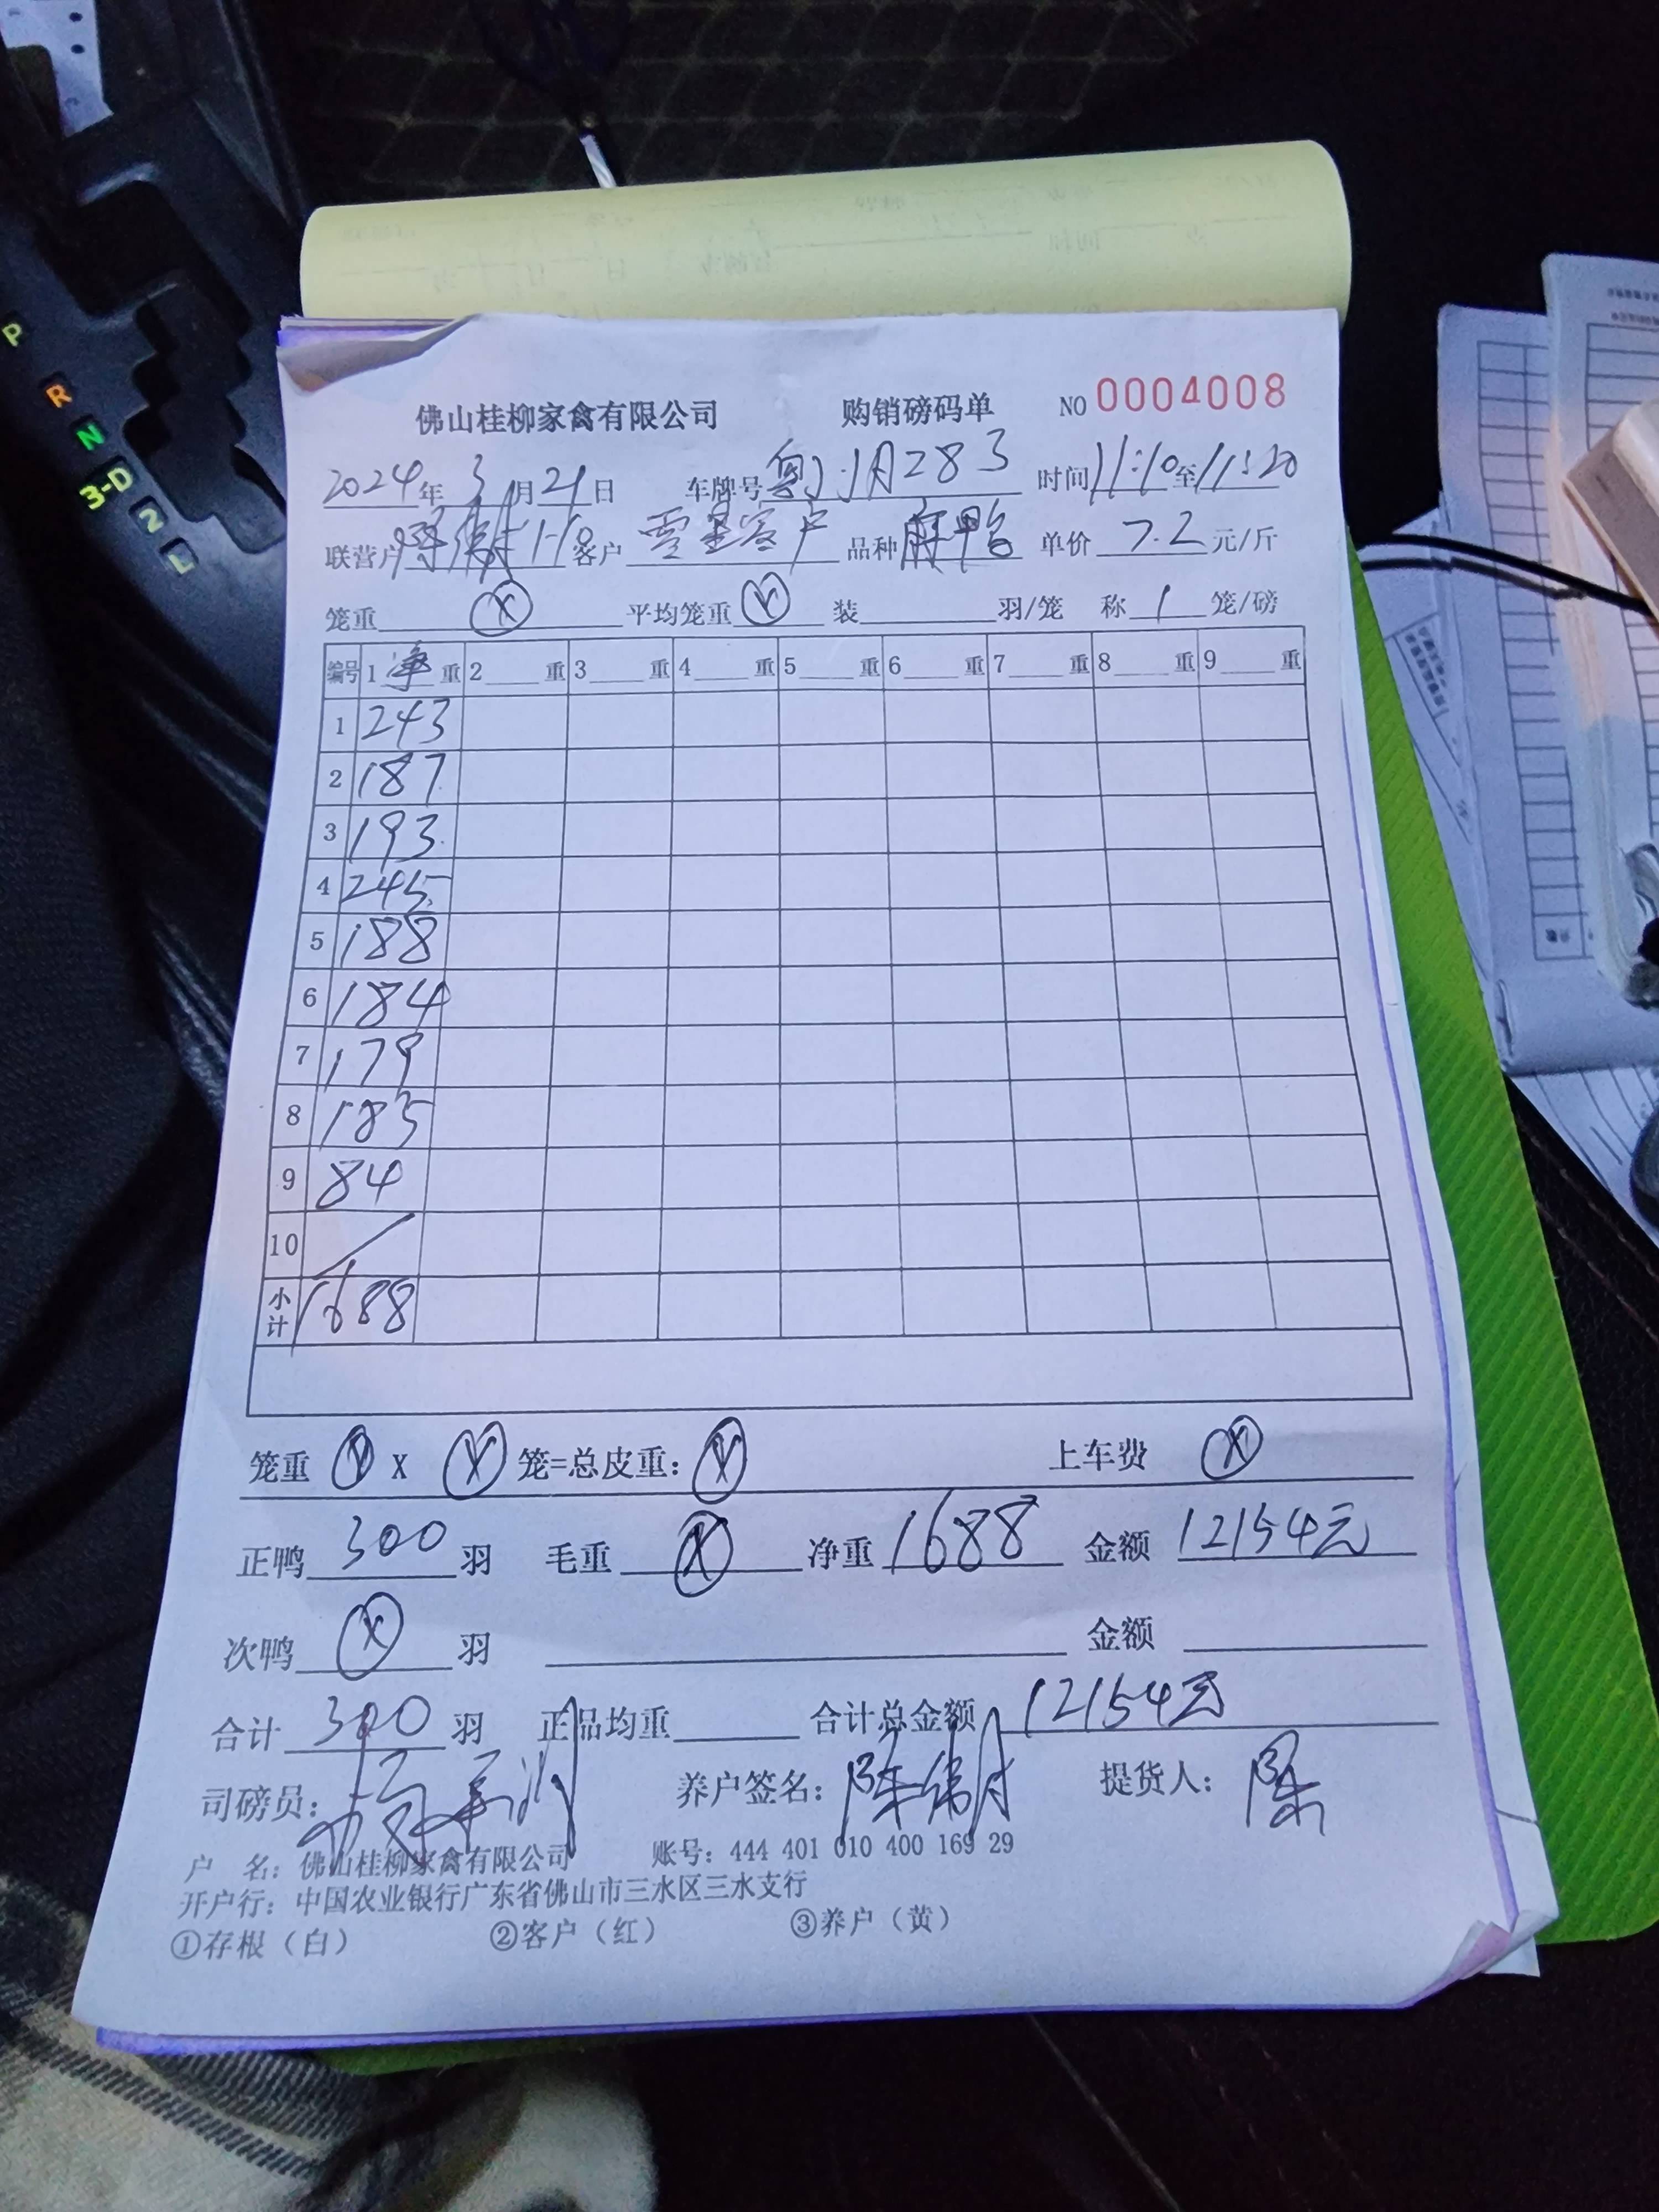 佛山桂柳家禽有限公司 购销磅码单 NO 0004008
2024年3月21日 车牌号 283 时间11:10至11:20
联营户 客户零星客户 品种麻鸭 单价7.2元/斤
笼重 ⓧ 平均笼重 装 羽/笼 称1笼/磅
编号 1净重 2 重 3 重 4 重 5 重 6 重 7 重 8 重 9 重
1 243
2 187
3 193
4 245
5 188
6 184
7 179
8 185
9 84
10
小计 1688
笼重 X 笼=总皮重: 上车费 ⓧ
正鸭300羽 毛重 ⓧ 净重1688 金额12154元
次鸭 ⓧ 羽 金额
合计300羽 正品均重 合计总金额12154元
司磅员: 养户签名: 陈 提货人: 陈
户 名: 佛山桂柳家禽有限公司 账号: 444 401 010 400 169 29
开户行: 中国农业银行广东省佛山市三水区三水支行
①存根（白） ②客户（红） ③养户（黄）
P
R
N
3-D
2
L